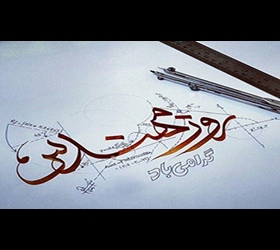 روز مهندس
گرامی باد